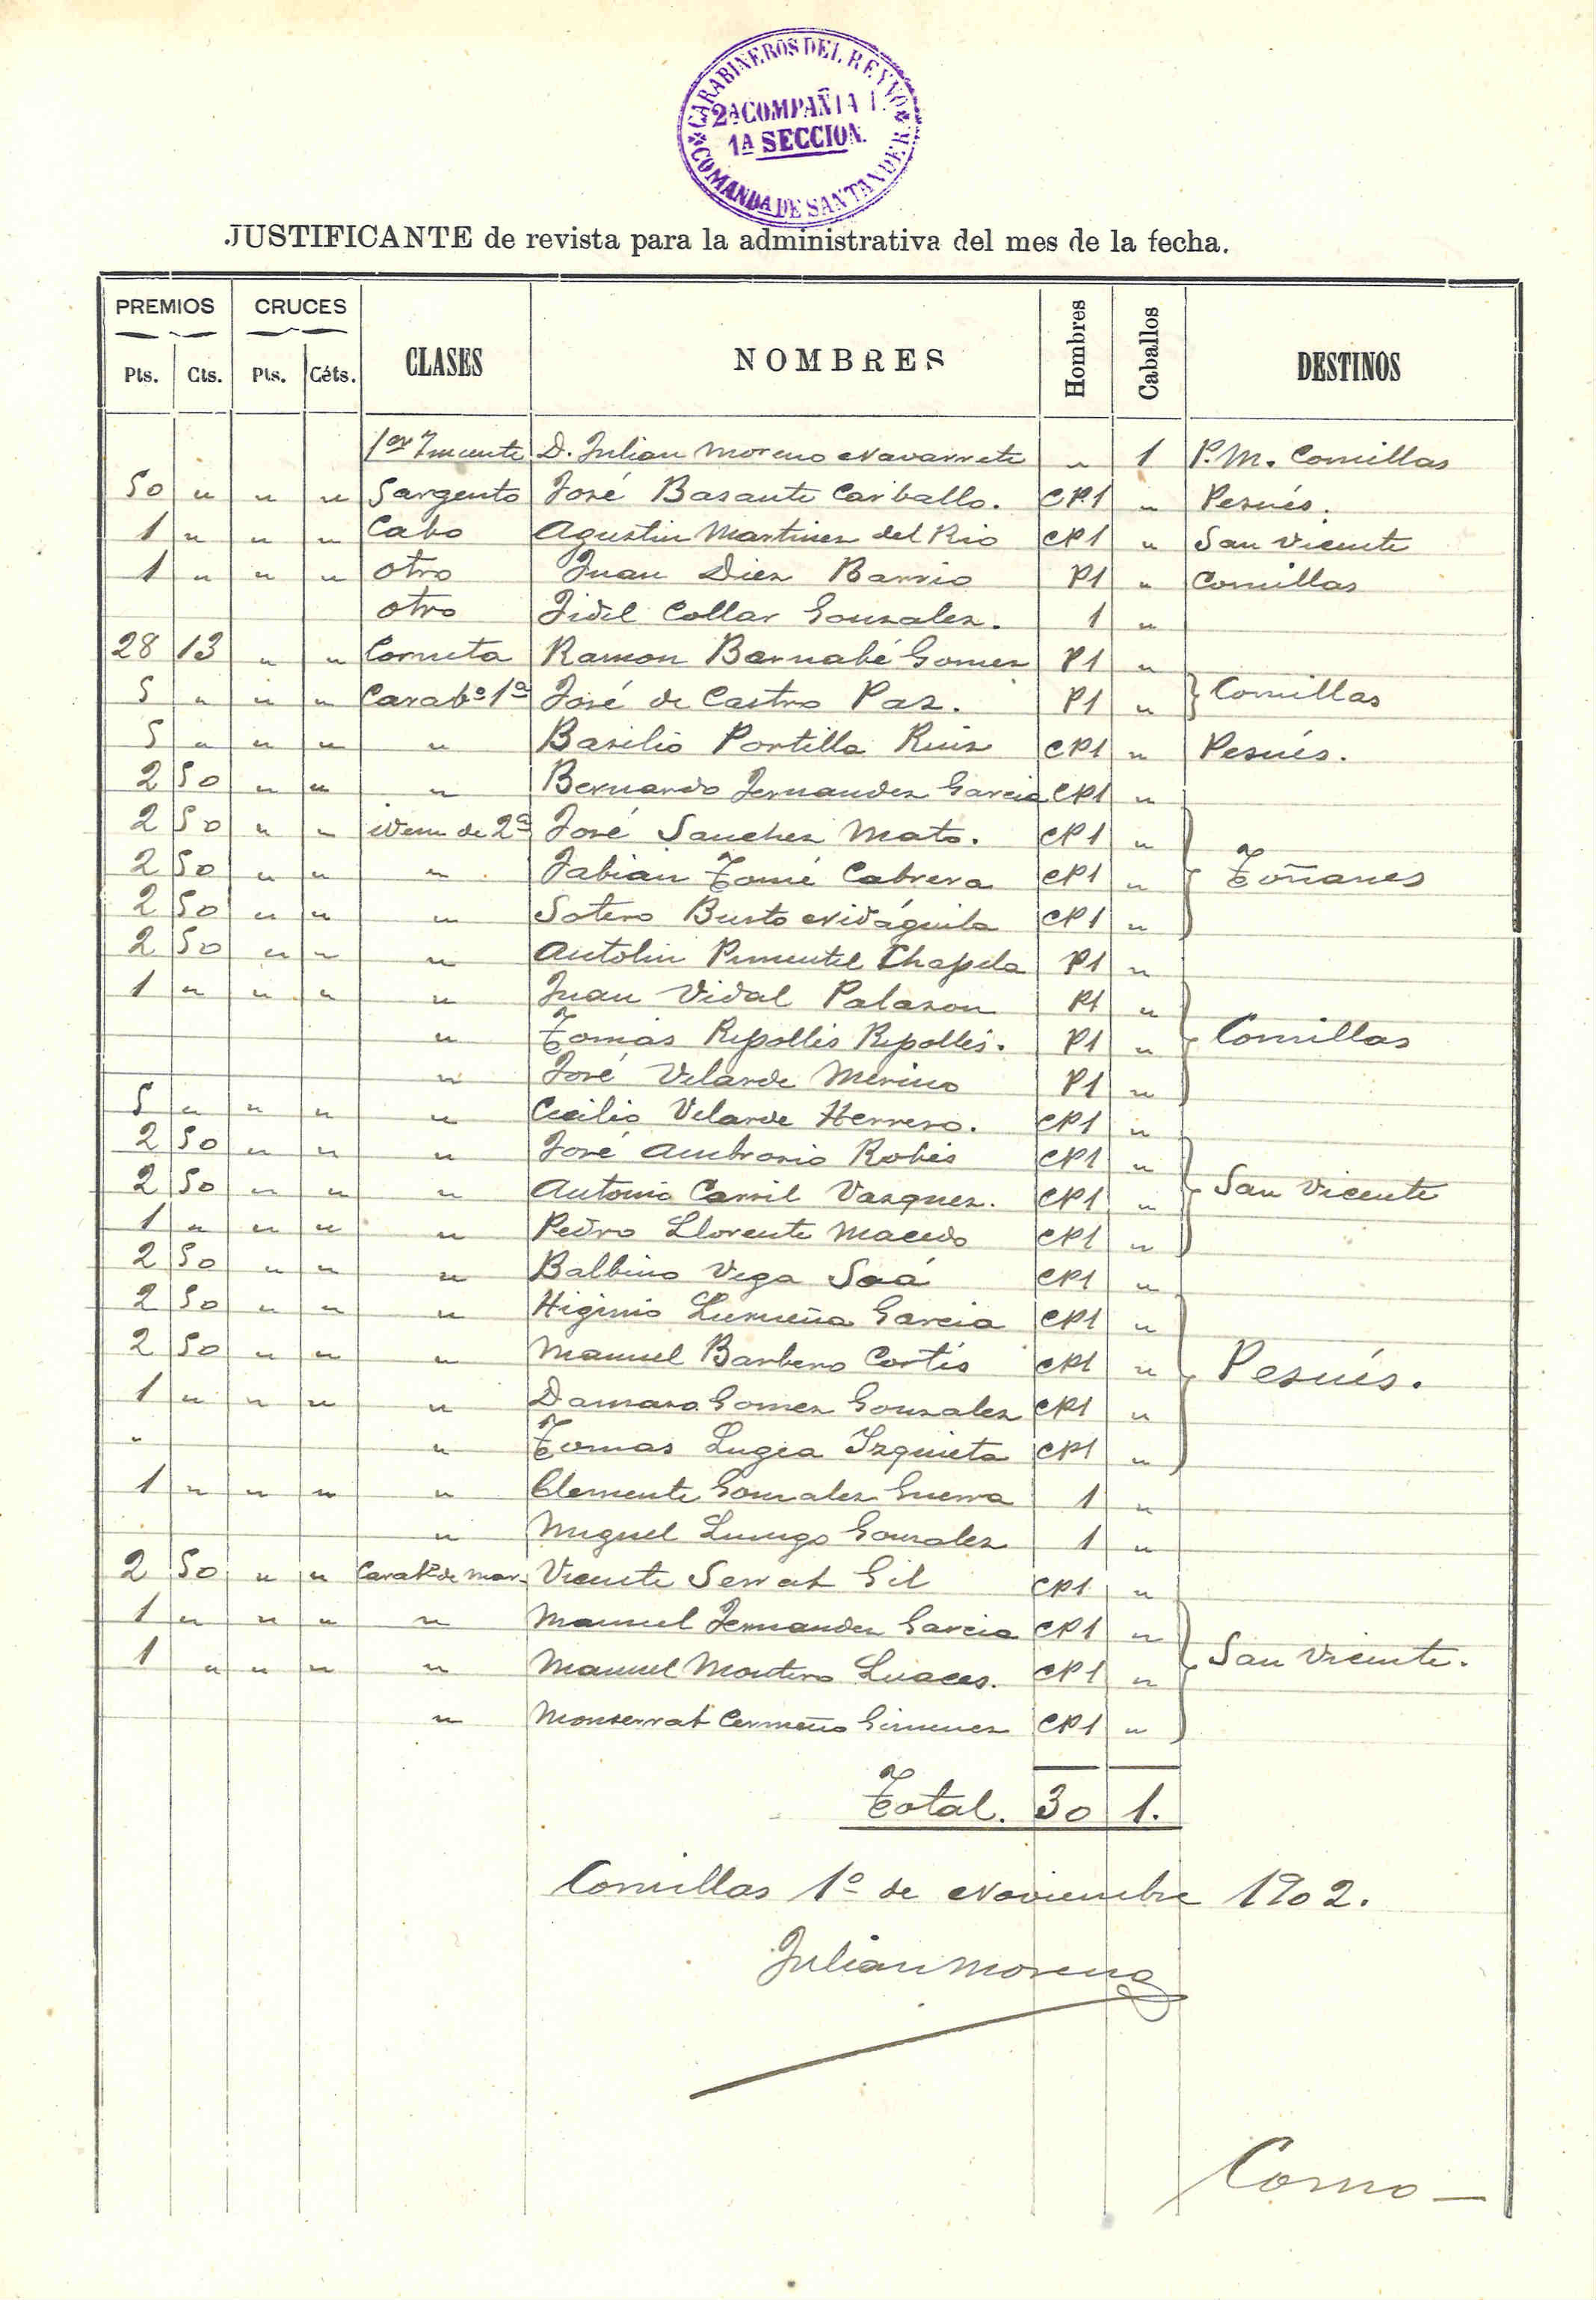 CARABINEROS DEL REYNO
2ª COMPAÑIA
1ª SECCION.
COMANDA DE SANTANDER
JUSTIFICANTE de revista para la administrativa del mes de la fecha.
PREMIOS CRUCES CLASES NOMBRES Hombres Caballos DESTINOS
Pts. Cts. Pts. Céts.
1er Tnciente D. Julian Moreno Navarrete " 1 P.M. Comillas
50 " " " Sargento José Basante Carballo. CP1 " Pesués.
1 " " " Cabo Agustin Martinez del Rio CP1 " San Vicente
1 " " " otro Juan Diez Barrio P1 " Comillas
otro Fidel Collar Gonzalez. 1 "
28 13 " " Corneta Ramon Bernabé Gomez P1 "
5 " " " Carabº 1ª José de Castro Paz. P1 " Comillas
5 " " " " Basilio Portilla Ruiz CP1 " Pesués.
2 50 " " " Bernardo Fernandez Garcia CP1 "
2 50 " " idem de 2ª José Sanchez Mato. CP1 "
2 50 " " " Fabian Tomé Cabrera CP1 " Toñanes
2 50 " " " Sotero Busto Nidáguila CP1 "
2 50 " " " Antolin Pimentel Chapela P1 "
1 " " " " Juan Vidal Palazon P1 "
" Tomás Ripollés Ripollés. P1 " Comillas
" José Velarde Merino P1 "
5 " " " " Cecilio Velarde Herrero. CP1 "
2 50 " " " José Ambrosio Robés CP1 "
2 50 " " " Antonio Carril Vazquez. CP1 " San Vicente
1 " " " " Pedro Llorente Macedo CP1 "
2 50 " " " Balbino Vega Saá CP1 "
2 50 " " " Higinio Lumeña Garcia CP1 "
2 50 " " " Manuel Barbero Cortés CP1 " Pesués.
1 " " " " Damaso Gomez Gonzalez CP1 "
" " Tomas Lugea Izquieta CP1 "
1 " " " " Clemente Gonzalez Guerra 1 "
" Miguel Luengo Gonzalez 1 "
2 50 " " Carabº de mar. Vicente Serrat Gil CP1 "
1 " " " " Manuel Fernandez Garcia CP1 "
1 " " " " Manuel Montero Luaces. CP1 " San Vicente.
" Monserrat Cermeño Gimenez CP1 "
Total. 30 1.
Comillas 1º de Noviembre 1902.
Julian Moreno
Como